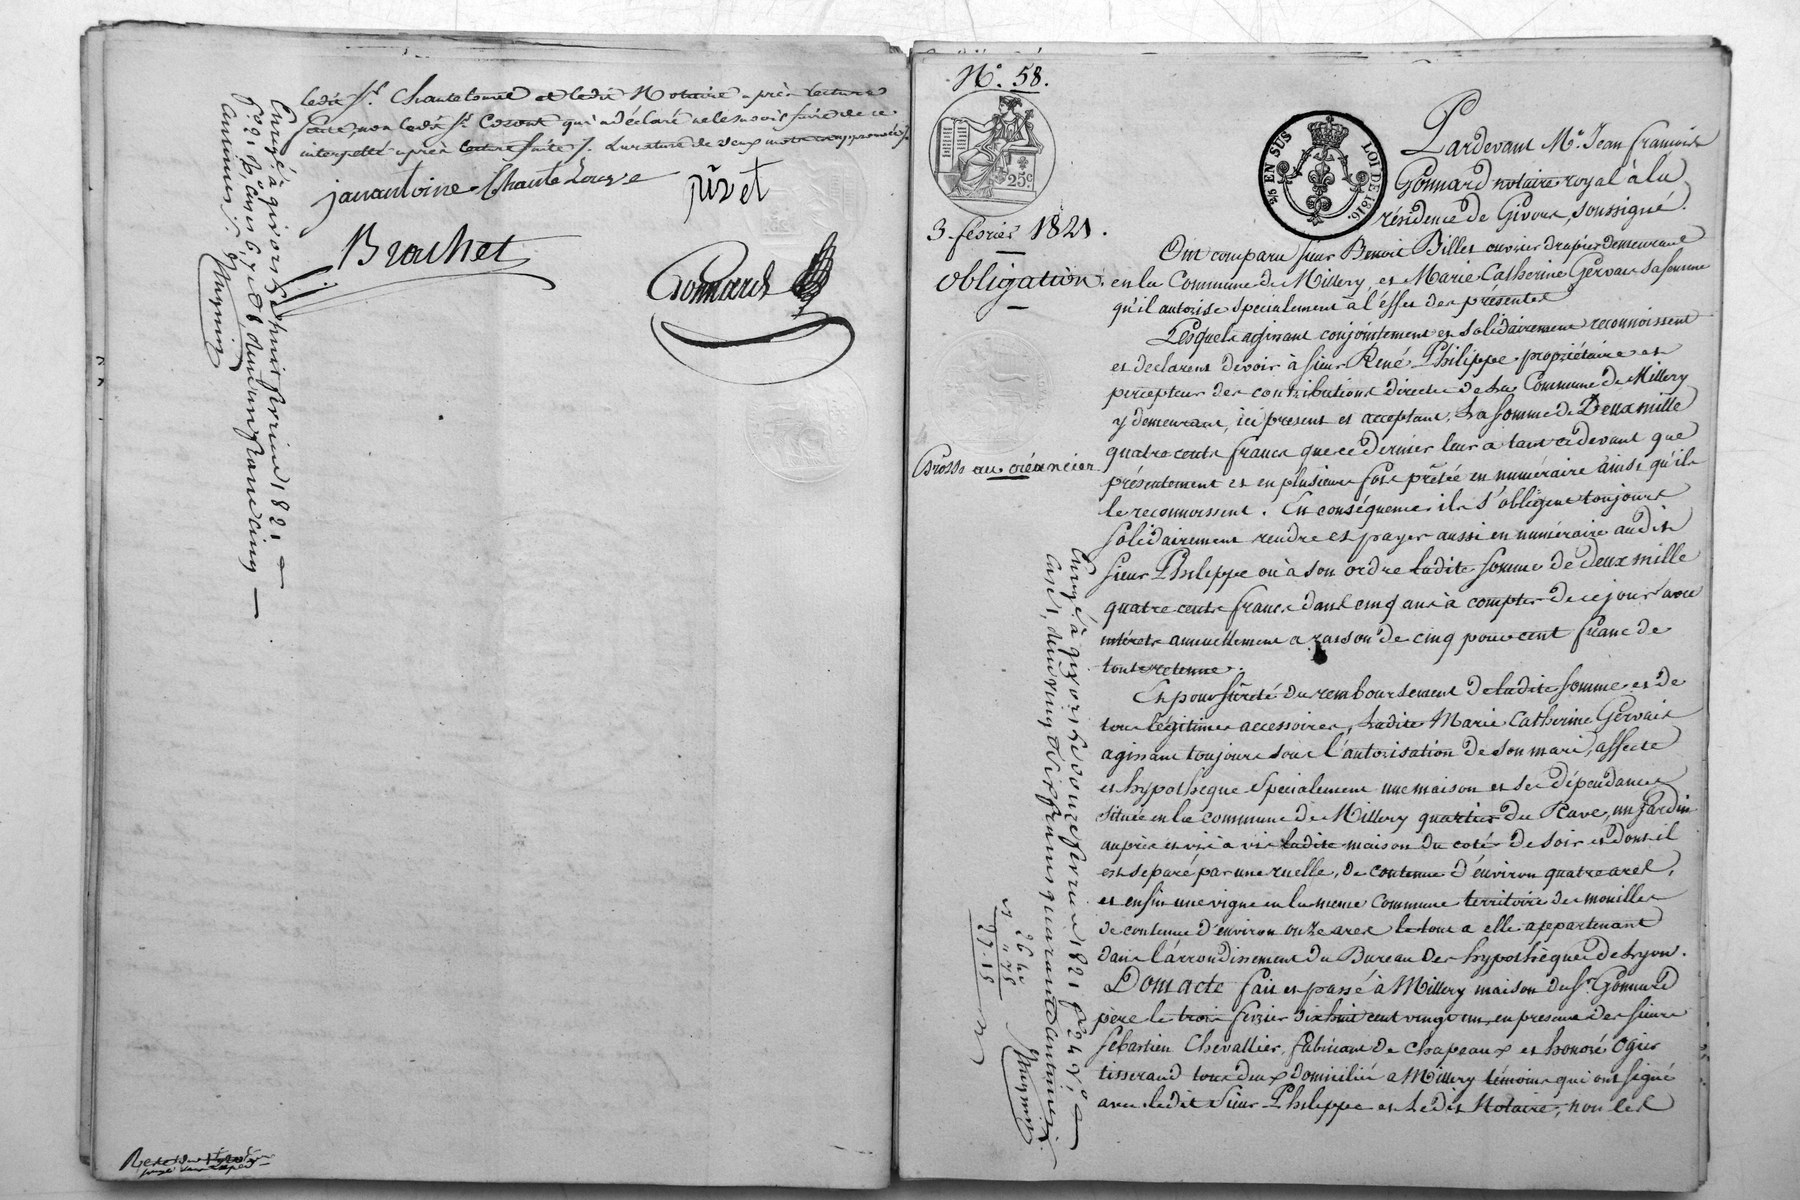 ledit Sr. Chantelouve et ledit Notaire après lecture
faite, non ledit Sr. qui a déclaré ne le savoir faire de ce
interpellé après lecture faite /. Lurature de deux mots
janantoine Chantelouve
pivet
Brachet
Gonnard
Enregé. à givors le huit fevrier 1821
fo. 21 Vo. Cases 6, 7 et 8, deux franc cinq
centimes /.
No. 58.
25c
3 février 1821.
Obligation
Grosse au créancier
2/6 EN SUS LOI DE 1816.
Pardevant Me. Jean François
Gonnard notaire royal à la
résidence de Givors, soussigné.
Ont comparu sieur Benoit Billet ouvrier drapier demeurant
en la Commune de Millery, et Marie Catherine Gervais sa femme
qu'il autorise spécialement à l'effet des présentes
Lesquels agissant conjointement et solidairement reconnoissent
et declarent devoir à sieur René Philippe propriétaire et
percepteur des contributions directes de la Commune de Millery
y demeurant, ici present et acceptant, la somme de Deux mille
quatre cents francs que ce dernier leur a tant cidevant que
présentement et en plusieurs fois prêtée en numéraire ainsi qu'ils
le reconnoissent. En conséquence ils s'obligent toujours
solidairement rendre et payer aussi en numéraire audit
sieur Philippe ou à son ordre ladite somme de deux mille
quatre cents francs dans cinq ans à compter de ce jour avec
intérêts annuellement a raison de cinq pour cent franc de
toute retenue.
Et pour sûreté du remboursement de ladite somme et de
tous légitimes accessoires, ladite Marie Catherine Gervais
agissant toujours sous l'autorisation de son mari, affecte
et hypothèque spécialement une maison et ses dépendances
située en la commune de Millery quartier du Pavé, un jardin
auprès et vis à vis ladite maison du coté de soir et dont il
est séparé par une ruelle, de contenue d'environ quatre ares,
et enfin une vigne en la meme Commune territoire des mouilles
de contenue d'environ onze ares le tout a elle appartenant
dans l'arrondissement du Bureau des hypothèques de Lyon.
Dont acte fait et passé à Millery maison du Sr. Gonnard
père le trois février dix huit cent vingt un, en presence des sieurs
Sébastien Chevallier, fabricant de chapeaux et honoré Ogier
tisserand tous deux domiciliés a Millery témoins qui ont signé
avec ledit sieur Philippe et ledit Notaire, non les
Enregé. à givors le douze fevrier 1821 fo. 24 Vo.
Case 1, vingt six francs quarante centimes
26 40
" 75
27 15